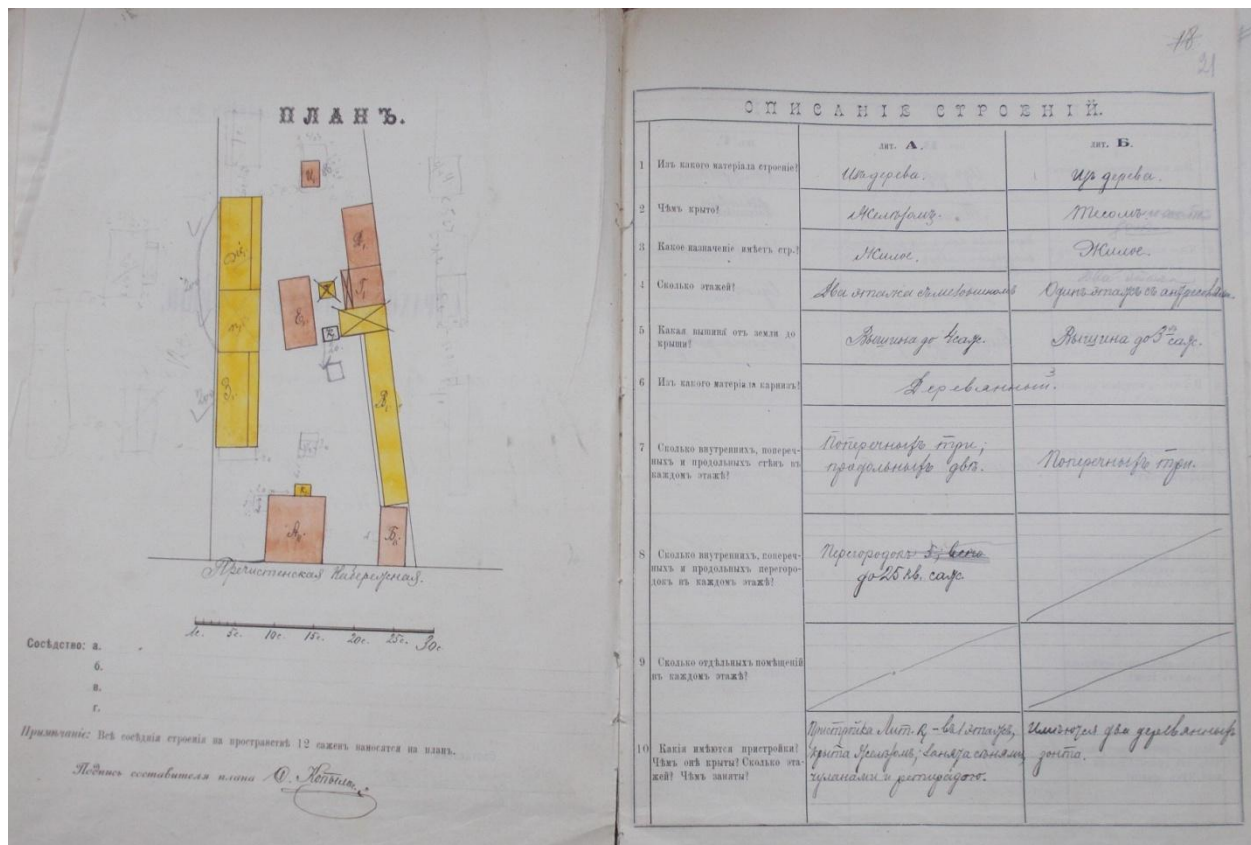 ПЛАНЪ.
И,
Д,
Г,
Е,
В,
А,
Б,
Пречистенская Набережная.
1с. 5с. 10с. 15с. 20с. 25с. 30с
Сосѣдство: а.
б.
в.
г.
Примѣчаніе: Всѣ сосѣднія строенія на пространствѣ 12 сажень наносятся на планъ.
Подпись составителя плана
18
21
ОПИСАНІЕ СТРОЕНІЙ.
лит. А.
лит. Б.
1 Изъ какого матеріала строеніе?
Изъ дерева.
Изъ дерева.
2 Чѣмъ крыто?
Желѣзомъ.
Тесомъ
3 Какое назначеніе имѣетъ стр.?
Жилое.
Жилое.
4 Сколько этажей?
Два этажа съ мезониномъ
Одинъ этажъ съ антресолями.
5 Какая вышина отъ земли до
крыши?
Вышина до 4 саж.
Вышина до 3 саж.
6 Изъ какого матеріала карнизъ?
Деревянный.
7 Сколько внутреннихъ, попереч-
ныхъ и продольныхъ стѣнъ въ
каждомъ этажѣ?
Поперечныхъ три;
продольныхъ двѣ.
Поперечныхъ три.
8 Сколько внутреннихъ, попереч-
ныхъ и продольныхъ перегоро-
докъ въ каждомъ этажѣ?
Перегородокъ 5, всего
до 25 кв. саж.
9 Сколько отдѣльныхъ помѣщеній
въ каждомъ этажѣ?
10 Какія имѣются пристройки?
Чѣмъ онѣ крыты? Сколько эта-
жей? Чѣмъ заняты?
Пристройка Лит. К - въ 1 этажъ,
крыта желѣзомъ; занята сѣнями,
чуланами и ретирадою.
Имѣются два деревянныхъ
зонта.